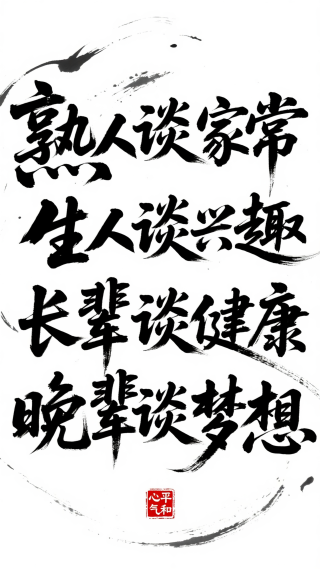 熟人谈家常
生人谈兴趣
长辈谈健康
晚辈谈梦想
平和
心气